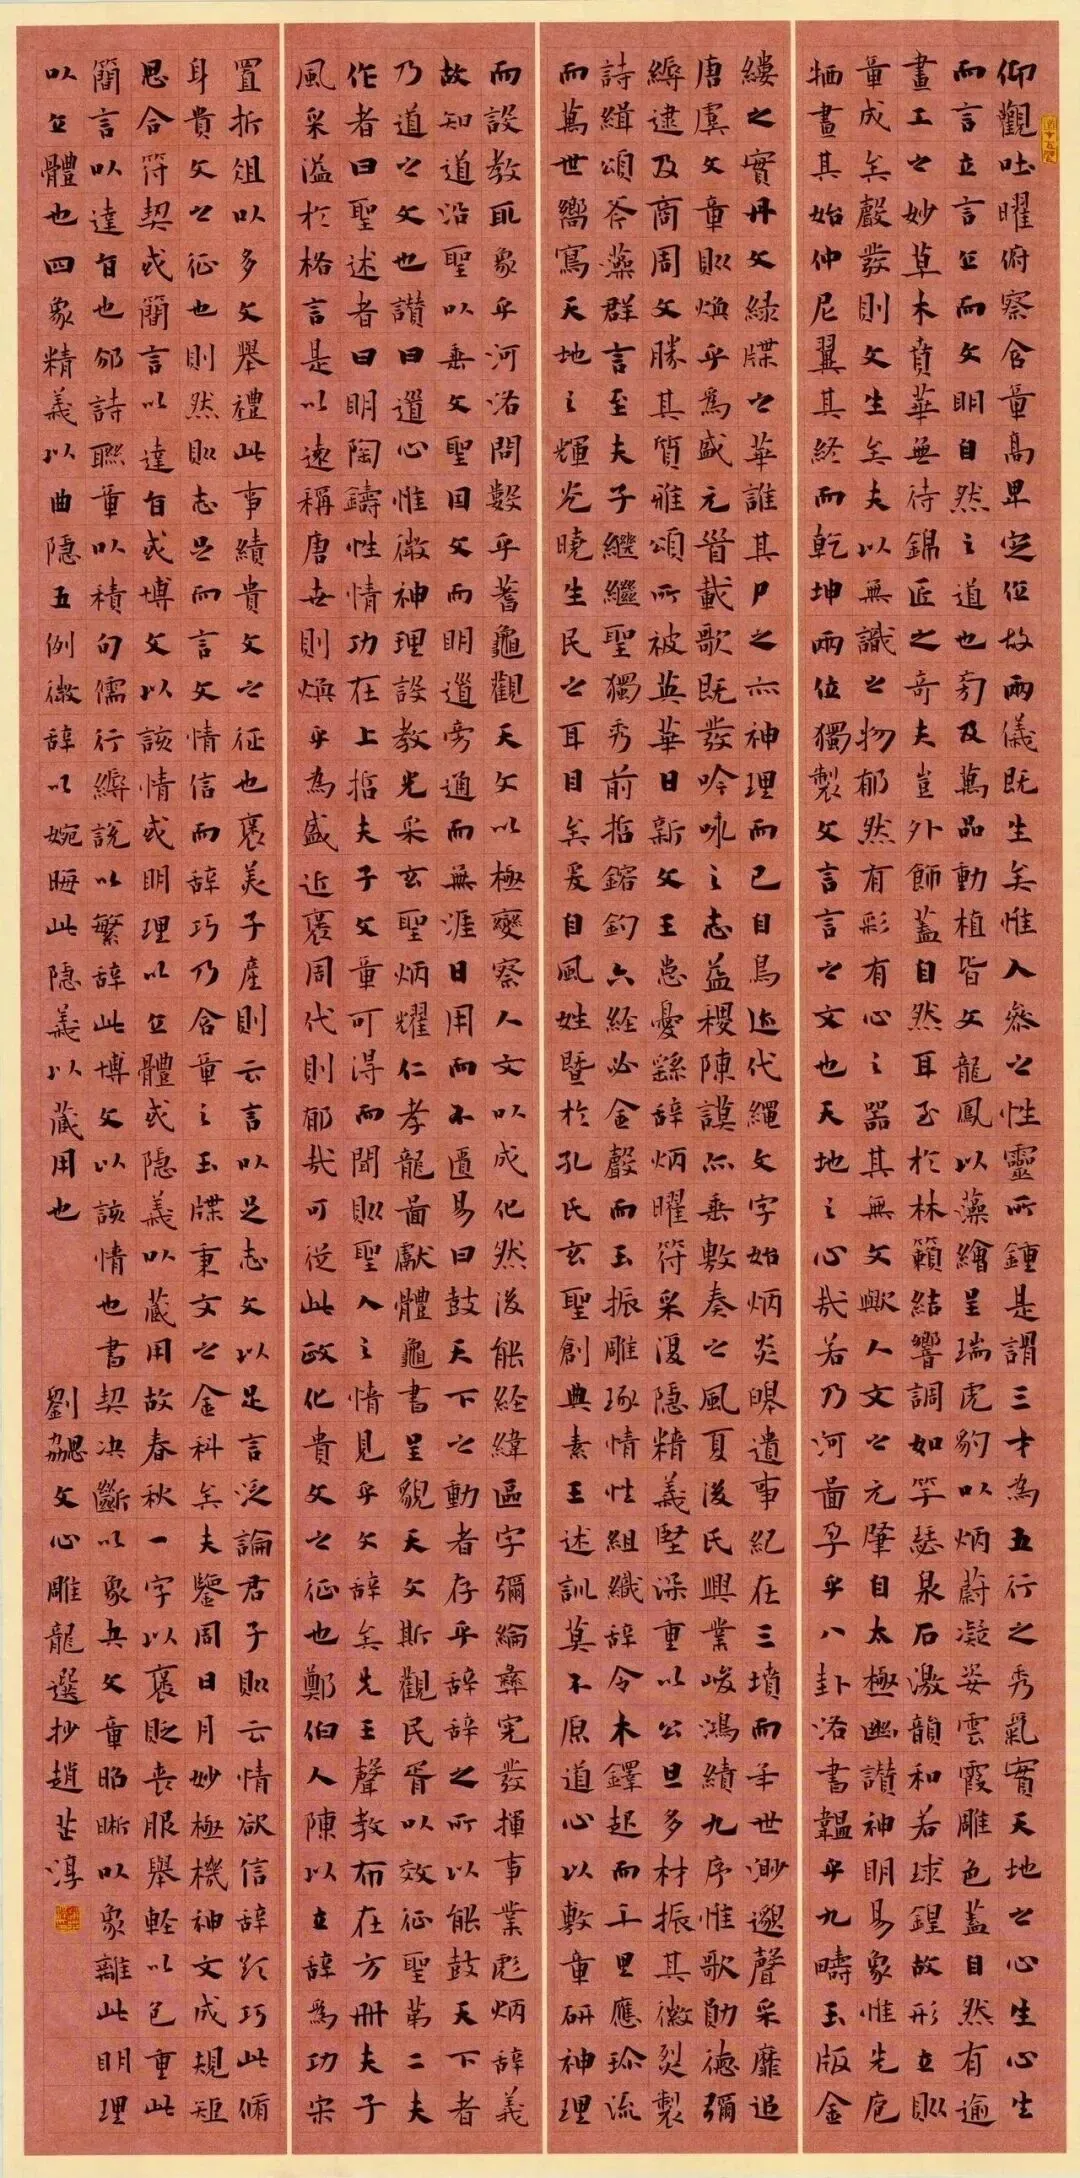 仰觀吐曜俯察含章高卑定位故兩儀既生矣惟人參之性靈所鍾是謂三才為五行之秀氣實天地之心生心生
而言立言立而文明自然之道也旁及萬品動植皆文龍鳳以藻繪呈瑞虎豹以炳蔚凝姿雲霞雕色蓋自然有逾
畫工之妙草木賁華無待錦匠之奇夫豈外飾蓋自然耳至於林籟結響調如竽瑟泉石激韻和若球鍠故形立則
章成矣聲發則文生矣夫以無識之物郁然有彩有心之器其無文歟人文之元肇自太極幽讚神明易象惟先庖
牺畫其始仲尼翼其終而乾坤兩位獨製文言言之文也天地之心哉若乃河圖孕乎八卦洛書韞乎九疇玉版金
縷之實丹文綠牒之華誰其尸之亦神理而已自鳥迹代繩文字始炳炎皞遺事紀在三墳而年世渺邈聲采靡追
唐虞文章則煥乎為盛元首載歌既發吟咏之志益稷陳謨亦垂敷奏之風夏後氏興業峻鴻績九序惟歌勛德彌
縟逮及商周文勝其質雅頌所被英華日新文王患憂繇辭炳曜符采復隱精義堅深重以公旦多材振其徽烈製
詩緝頌斧藻群言至夫子繼繼聖獨秀前哲鎔鈞六經必金聲而玉振雕琢情性組織辭令木鐸起而千里應珍流
而萬世嚮寫天地之輝光曉生民之耳目矣爰自風姓暨於孔氏玄聖創典素王述訓莫不原道心以敷章研神理
而設教取象乎河洛問數乎蓍龜觀天文以極變察人文以成化然後能經緯區宇彌綸彝憲發揮事業彪炳辭義
故知道沿聖以垂文聖因文而明道旁通而無涯日用而不匱易曰鼓天下之動者存乎辭辭之所以能鼓天下者
乃道之文也讚曰道心惟微神理設教光采玄聖炳耀仁孝龍圖獻體龜書呈貌天文斯觀民胥以效征聖第二夫
作者曰聖述者曰明陶鑄性情功在上哲夫子文章可得而聞則聖人之情見乎文辭矣先王聲教布在方冊夫子
風采溢於格言是以遠稱唐世則煥乎為盛近褒周代則郁哉可從此政化貴文之征也鄭伯入陳以立辭為功宋
置折俎以多文舉禮此事績貴文之征也褒美子產則云言以足志文以足言泛論君子則云情欲信辭欲巧此脩
身貴文之征也則然則志足而言文情信而辭巧乃含章之玉牒秉文之金科矣夫鑒周日月妙極機神文成規矩
思合符契或簡言以達旨或博文以該情或明理以立體或隱義以藏用故春秋一字以褒貶喪服舉輕以包重此
簡言以達旨也邠詩聯章以積句儒行縟說以繁辭此博文以該情也書契決斷以象夬文章昭晰以象離此明理
以立體也四象精義以曲隱五例微辭以婉晦此隱義以藏用也 劉勰文心雕龍選抄趙芷淳